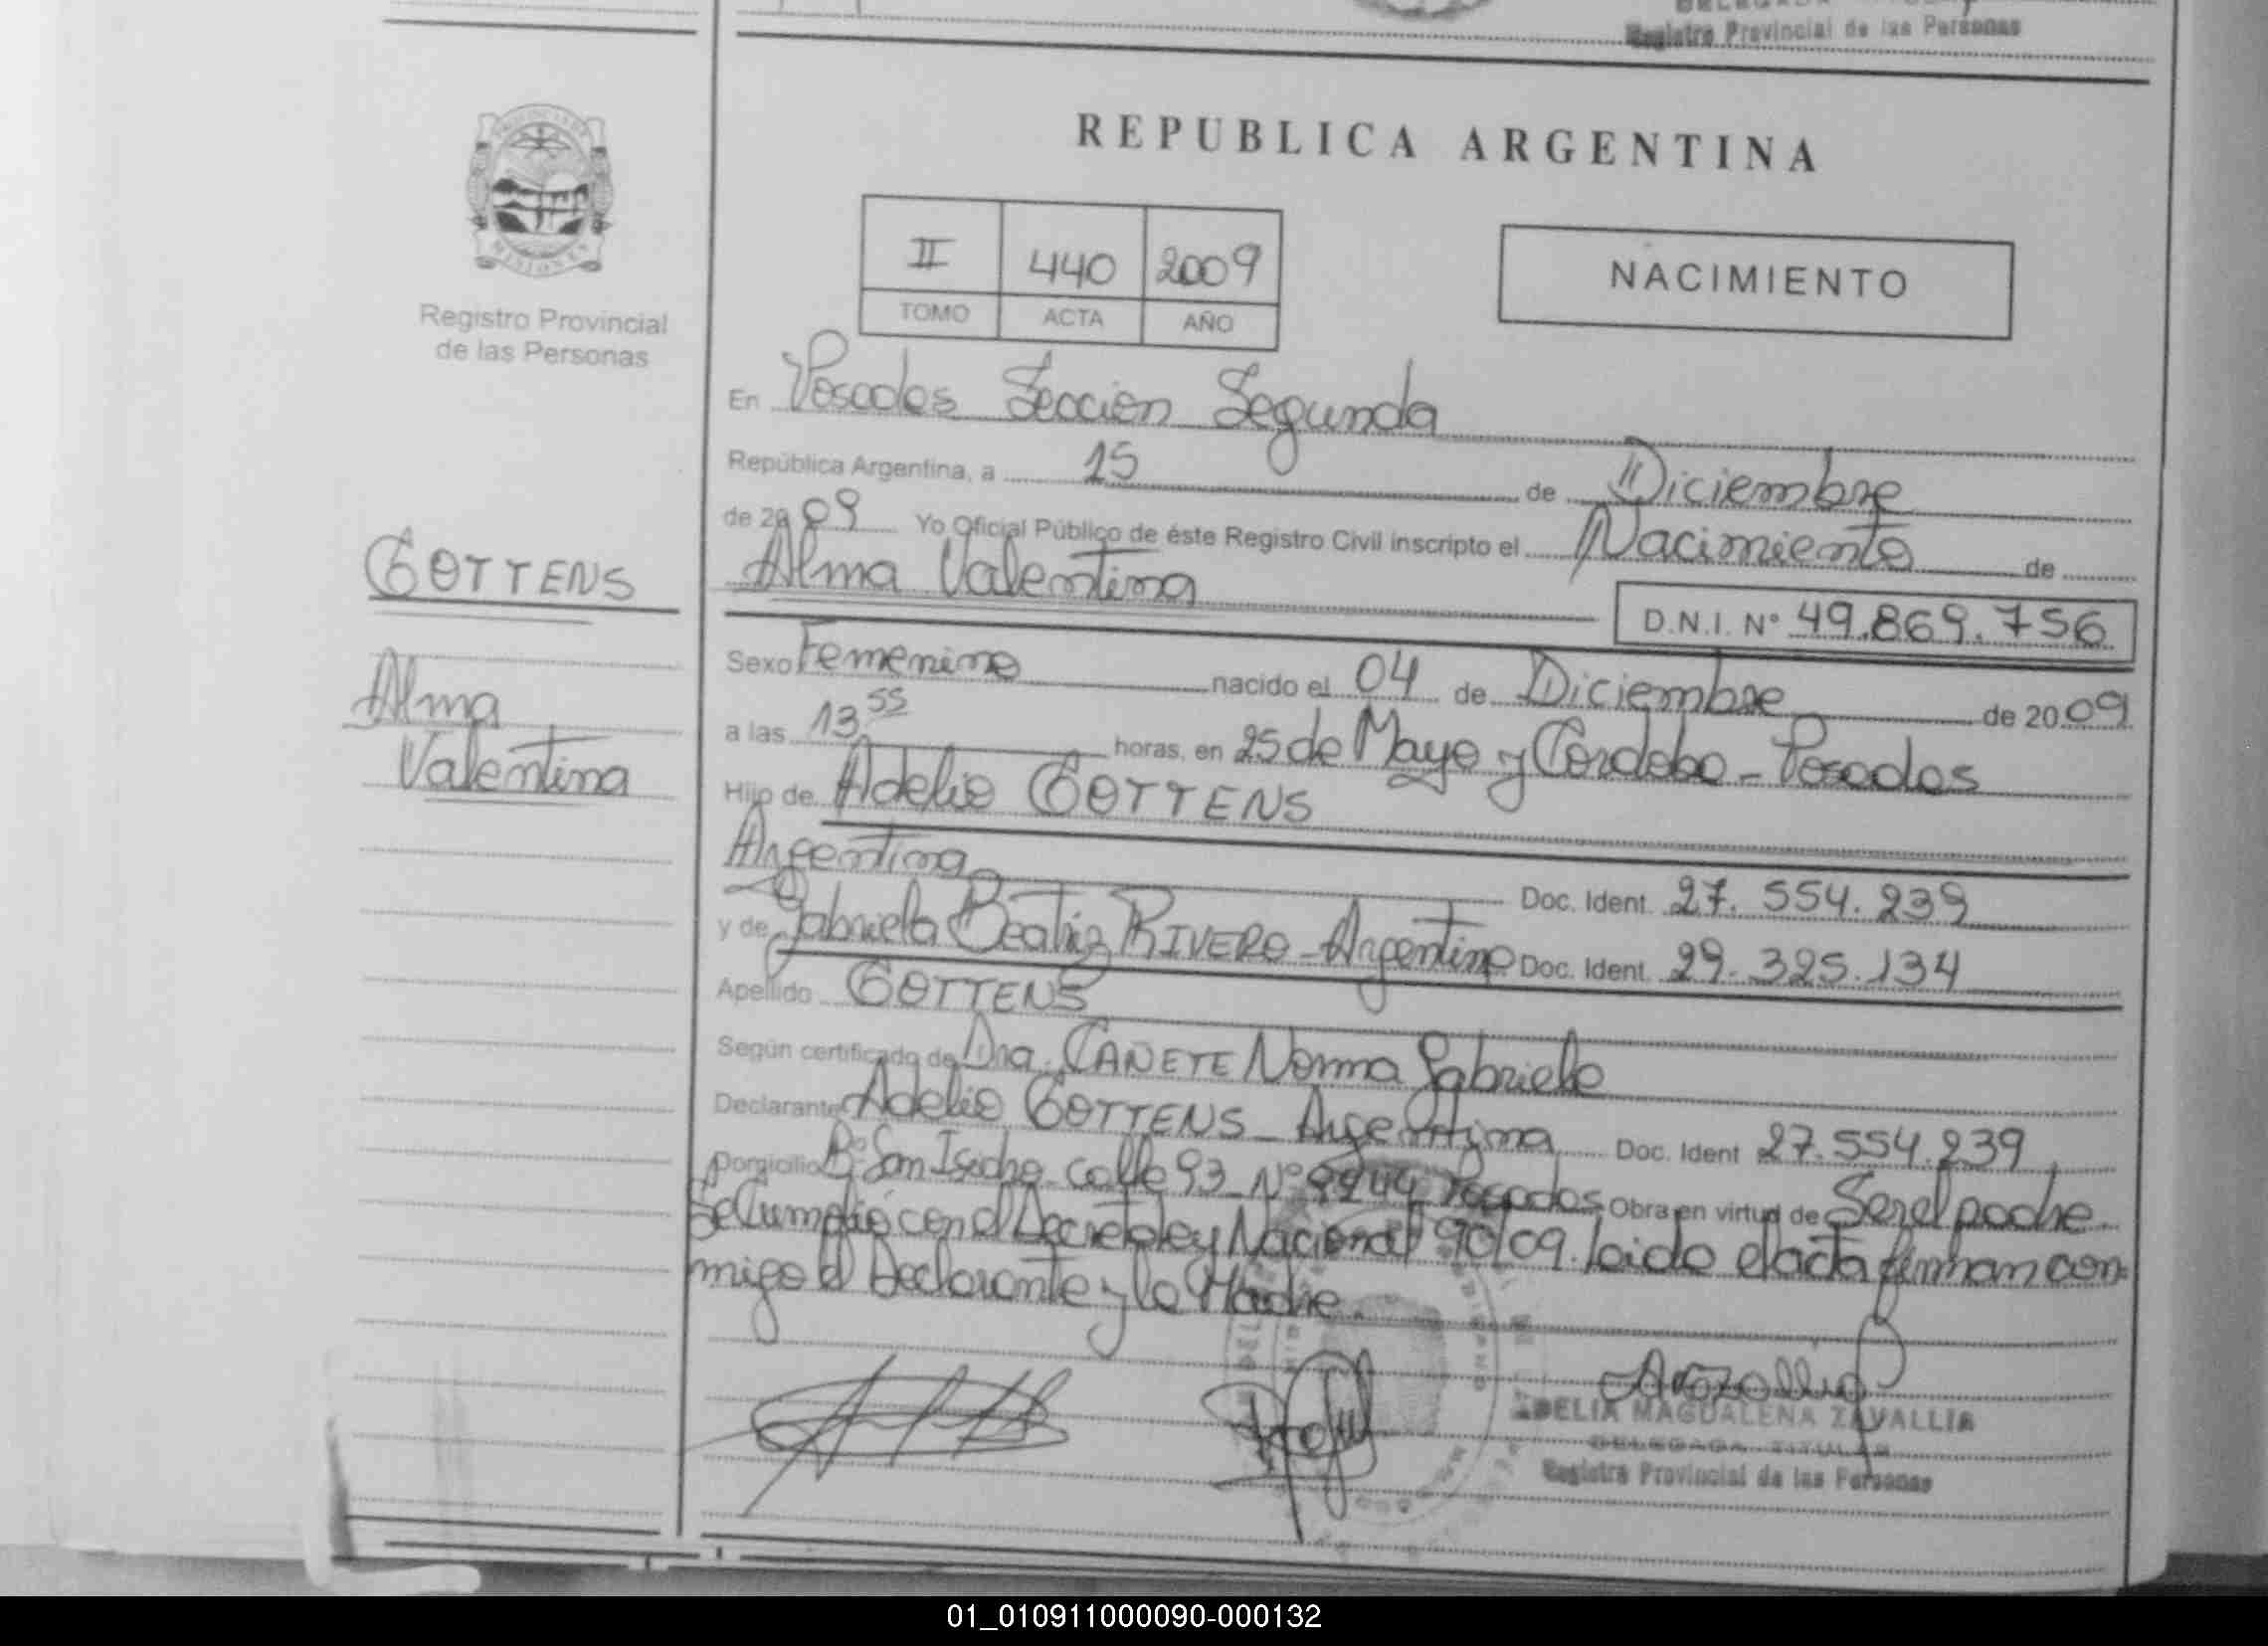 Registro Provincial de las Personas
REPUBLICA ARGENTINA
II 440 2009
TOMO ACTA AÑO
NACIMIENTO
MISIONES
Registro Provincial
de las Personas
GOTTENS
Alma
Valentina
En Posadas Sección Segunda
República Argentina, a 15 de Diciembre
de 2009 Yo Oficial Público de éste Registro Civil inscripto el Nacimiento de
Alma Valentina
D.N.I. N° 49.869.756
Sexo Femenino nacido el 04 de Diciembre de 2009
a las 13 55 horas, en 25 de Mayo y Cordoba - Posadas
Hijo de Adelio GOTTENS
Argentina Doc. Ident. 27.554.239
y de Gabriela Beatriz RIVERO - Argentina Doc. Ident. 29.325.134
Apellido GOTTENS
Según certificado de Dra. CAÑETE Norma Gabriela
Declarante Adelio GOTTENS - Argentina Doc. Ident 27.554.239
Domicilio B° San Isidro - calle 93 - N° Posadas Obra en virtud de Ser el padre
Se Cumplió con el Decreto ley Nacional 90/09. leido el acta firman con
migo el Declarante y la Madre.
ADELIA MAGDALENA ZAVALLIA
DELEGADA TITULAR
Registro Provincial de las Personas
01_010911000090-000132